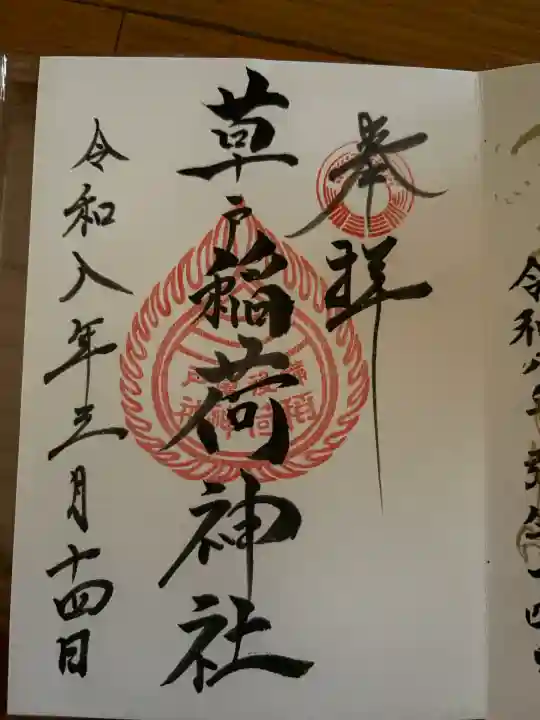 奉拝
草戸稲荷神社
令和八年三月十四日